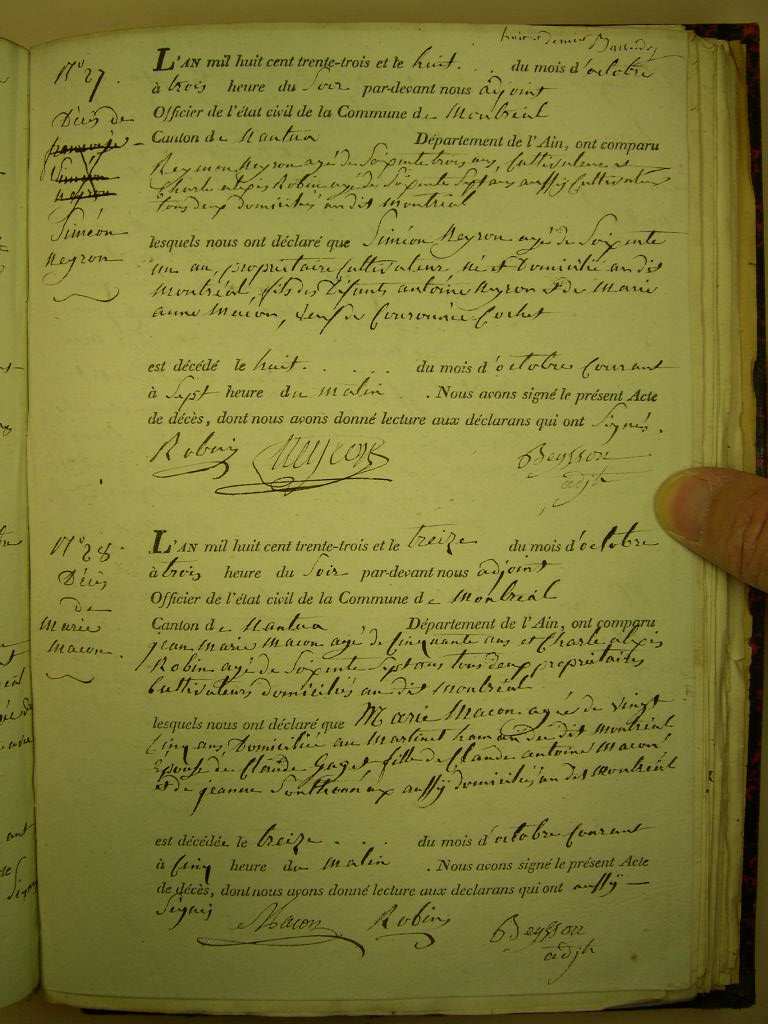 N° 27.
Décès de
Siméon
Neyron
L'AN mil huit cent trente-trois et le huit . . . du mois d'octobre
à trois heure du Soir par-devant nous adjoint
Officier de l'état civil de la Commune de Montréal
Canton de Nantua Département de l'Ain, ont comparu
Neyron agé de Soixante trois ans, Cultivateur et
Charle alexis Robin agé de Soixente Sept ans aussy Cultivateur
tous deux domiciliés au dit Montréal
lesquels nous ont déclaré que Siméon Neyron agé de Soixente
un an, propriétaire Cultivateur, né et Domicilié au dit
Montréal, fils des défunts antoine Neyron et de Marie
anne Macon, veuf de Couronnée Cochet
est décédé le huit . . . . . du mois d'octobre Courant
à Sept heure du Matin . Nous avons signé le présent Acte
de décès, dont nous avons donné lecture aux déclarans qui ont Signés.
Robin Neyron Beysson
adjt
N° 28.
Décès
de
Marie
Macon.
L'AN mil huit cent trente-trois et le treize du mois d'octobre
à trois heure du Soir par-devant nous adjoint
Officier de l'état civil de la Commune de Montréal
Canton de Nantua Département de l'Ain, ont comparu
jean Marie Macon agé de Cinquante ans et Charle alexis
Robin agé de Soixente Sept ans tous deux propriétaires
Cultivateurs domiciliés au dit Montréal
lesquels nous ont déclaré que Marie Macon agée de vingt
Cinq ans, Domiciliée au Martinet hamau du dit Montréal
Epouse de Claude Gaget fille de Claude antoine Macon,
et de jeanne aussy domiciliés au dit Montréal
est décédée le treize . . . du mois d'octobre Courant
à Cinq heure du Matin . Nous avons signé le présent Acte
de décès, dont nous avons donné lecture aux declarans qui ont aussy
Signés
Macon Robin Beysson
adjt